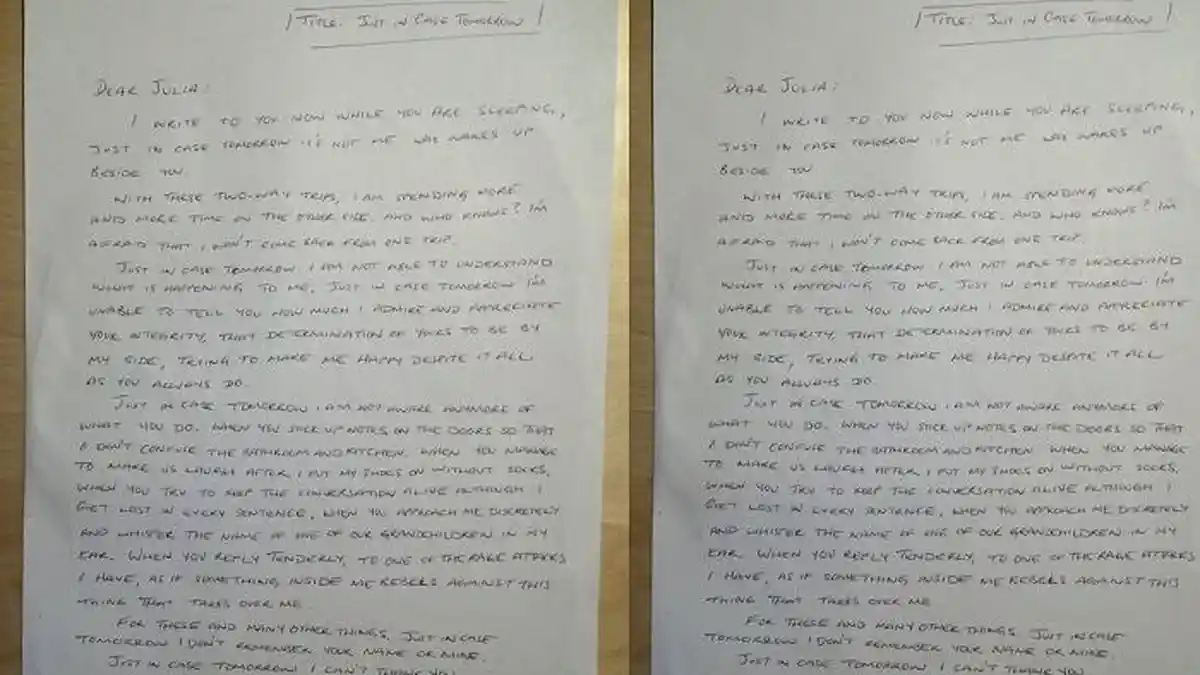 TITLE: JUST IN CASE TOMORROW
DEAR JULIA:
I WRITE TO YOU NOW WHILE YOU ARE SLEEPING,
JUST IN CASE TOMORROW IT'S NOT ME WAKES UP
BESIDE YOU.
WITH THESE TWO-WAY TRIPS, I AM SPENDING MORE
AND MORE TIME ON THE OTHER SIDE. AND WHO KNOWS? I'M
AFRAID THAT I WON'T COME BACK FROM ONE TRIP.
JUST IN CASE TOMORROW I AM NOT ABLE TO UNDERSTAND
WHAT IS HAPPENING TO ME. JUST IN CASE TOMORROW I'M
UNABLE TO TELL YOU HOW MUCH I ADMIRE AND APPRECIATE
YOUR INTEGRITY, THAT DETERMINATION OF YOURS TO BE BY
MY SIDE, TRYING TO MAKE ME HAPPY DESPITE IT ALL
AS YOU ALLWAYS DO.
JUST IN CASE TOMORROW I AM NOT AWARE ANYMORE OF
WHAT YOU DO. WHEN YOU STICK UP NOTES ON THE DOORS SO THAT
I DON'T CONFUSE THE BATHROOM AND KITCHEN. WHEN YOU MANAGE
TO MAKE US LAUGH AFTER I PUT MY SHOES ON WITHOUT SOCKS.
WHEN YOU TRY TO KEEP THE CONVERSATION ALIVE ALTHOUGH I
GET LOST IN EVERY SENTENCE. WHEN YOU APPROACH ME DISCRETELY
AND WHISTER THE NAME OF ONE OF OUR GRANDCHILDREN IN MY
EAR. WHEN YOU REPLY TENDERLY, TO ONE OF THE RAGE ATTAKS
I HAVE, AS IF SOMETHING INSIDE ME REBELS AGAINST THIS
THING THAT TAKES OVER ME.
FOR THESE AND MANY OTHER THINGS. JUST IN CASE
TOMORROW I DON'T REMEMBER YOUR NAME OR MINE.
JUST IN CASE TOMORROW I CAN'T THANK YOU
TITLE: JUST IN CASE TOMORROW
DEAR JULIA:
I WRITE TO YOU NOW WHILE YOU ARE SLEEPING,
JUST IN CASE TOMORROW IT'S NOT ME WAKES UP
BESIDE YOU
WITH THESE TWO-WAY TRIPS, I AM SPENDING MORE
AND MORE TIME ON THE OTHER SIDE. AND WHO KNOWS? I'M
AFRAID THAT I WON'T COME BACK FROM ONE TRIP.
JUST IN CASE TOMORROW I AM NOT ABLE TO UNDERSTAND
WHAT IS HAPPENING TO ME. JUST IN CASE TOMORROW I'M
UNABLE TO TELL YOU HOW MUCH I ADMIRE AND APPRECIATE
YOUR INTEGRITY, THAT DETERMINATION OF YOURS TO BE BY
MY SIDE, TRYING TO MAKE ME HAPPY DESPITE IT ALL
AS YOU ALLWAYS DO.
JUST IN CASE TOMORROW I AM NOT AWARE ANYMORE OF
WHAT YOU DO. WHEN YOU STICK UP NOTES ON THE DOORS SO THAT
I DON'T CONFUSE THE BATHROOM AND KITCHEN. WHEN YOU MANAGE
TO MAKE US LAUGH AFTER I PUT MY SHOES ON WITHOUT SOCKS.
WHEN YOU TRY TO KEEP THE CONVERSATION ALIVE ALTHOUGH I
GET LOST IN EVERY SENTENCE. WHEN YOU APPROACH ME DISCRETELY
AND WHISTER THE NAME OF ONE OF OUR GRANDCHILDREN IN MY
EAR. WHEN YOU REPLY TENDERLY, TO ONE OF THE RAGE ATTAKS
I HAVE, AS IF SOMETHING INSIDE ME REBELS AGAINST THIS
THING THAT TAKES OVER ME
FOR THESE AND MANY OTHER THINGS. JUST IN CASE
TOMORROW I DON'T REMEMBER YOUR NAME OR MINE.
JUST IN CASE TOMORROW I CAN'T THANK YOU